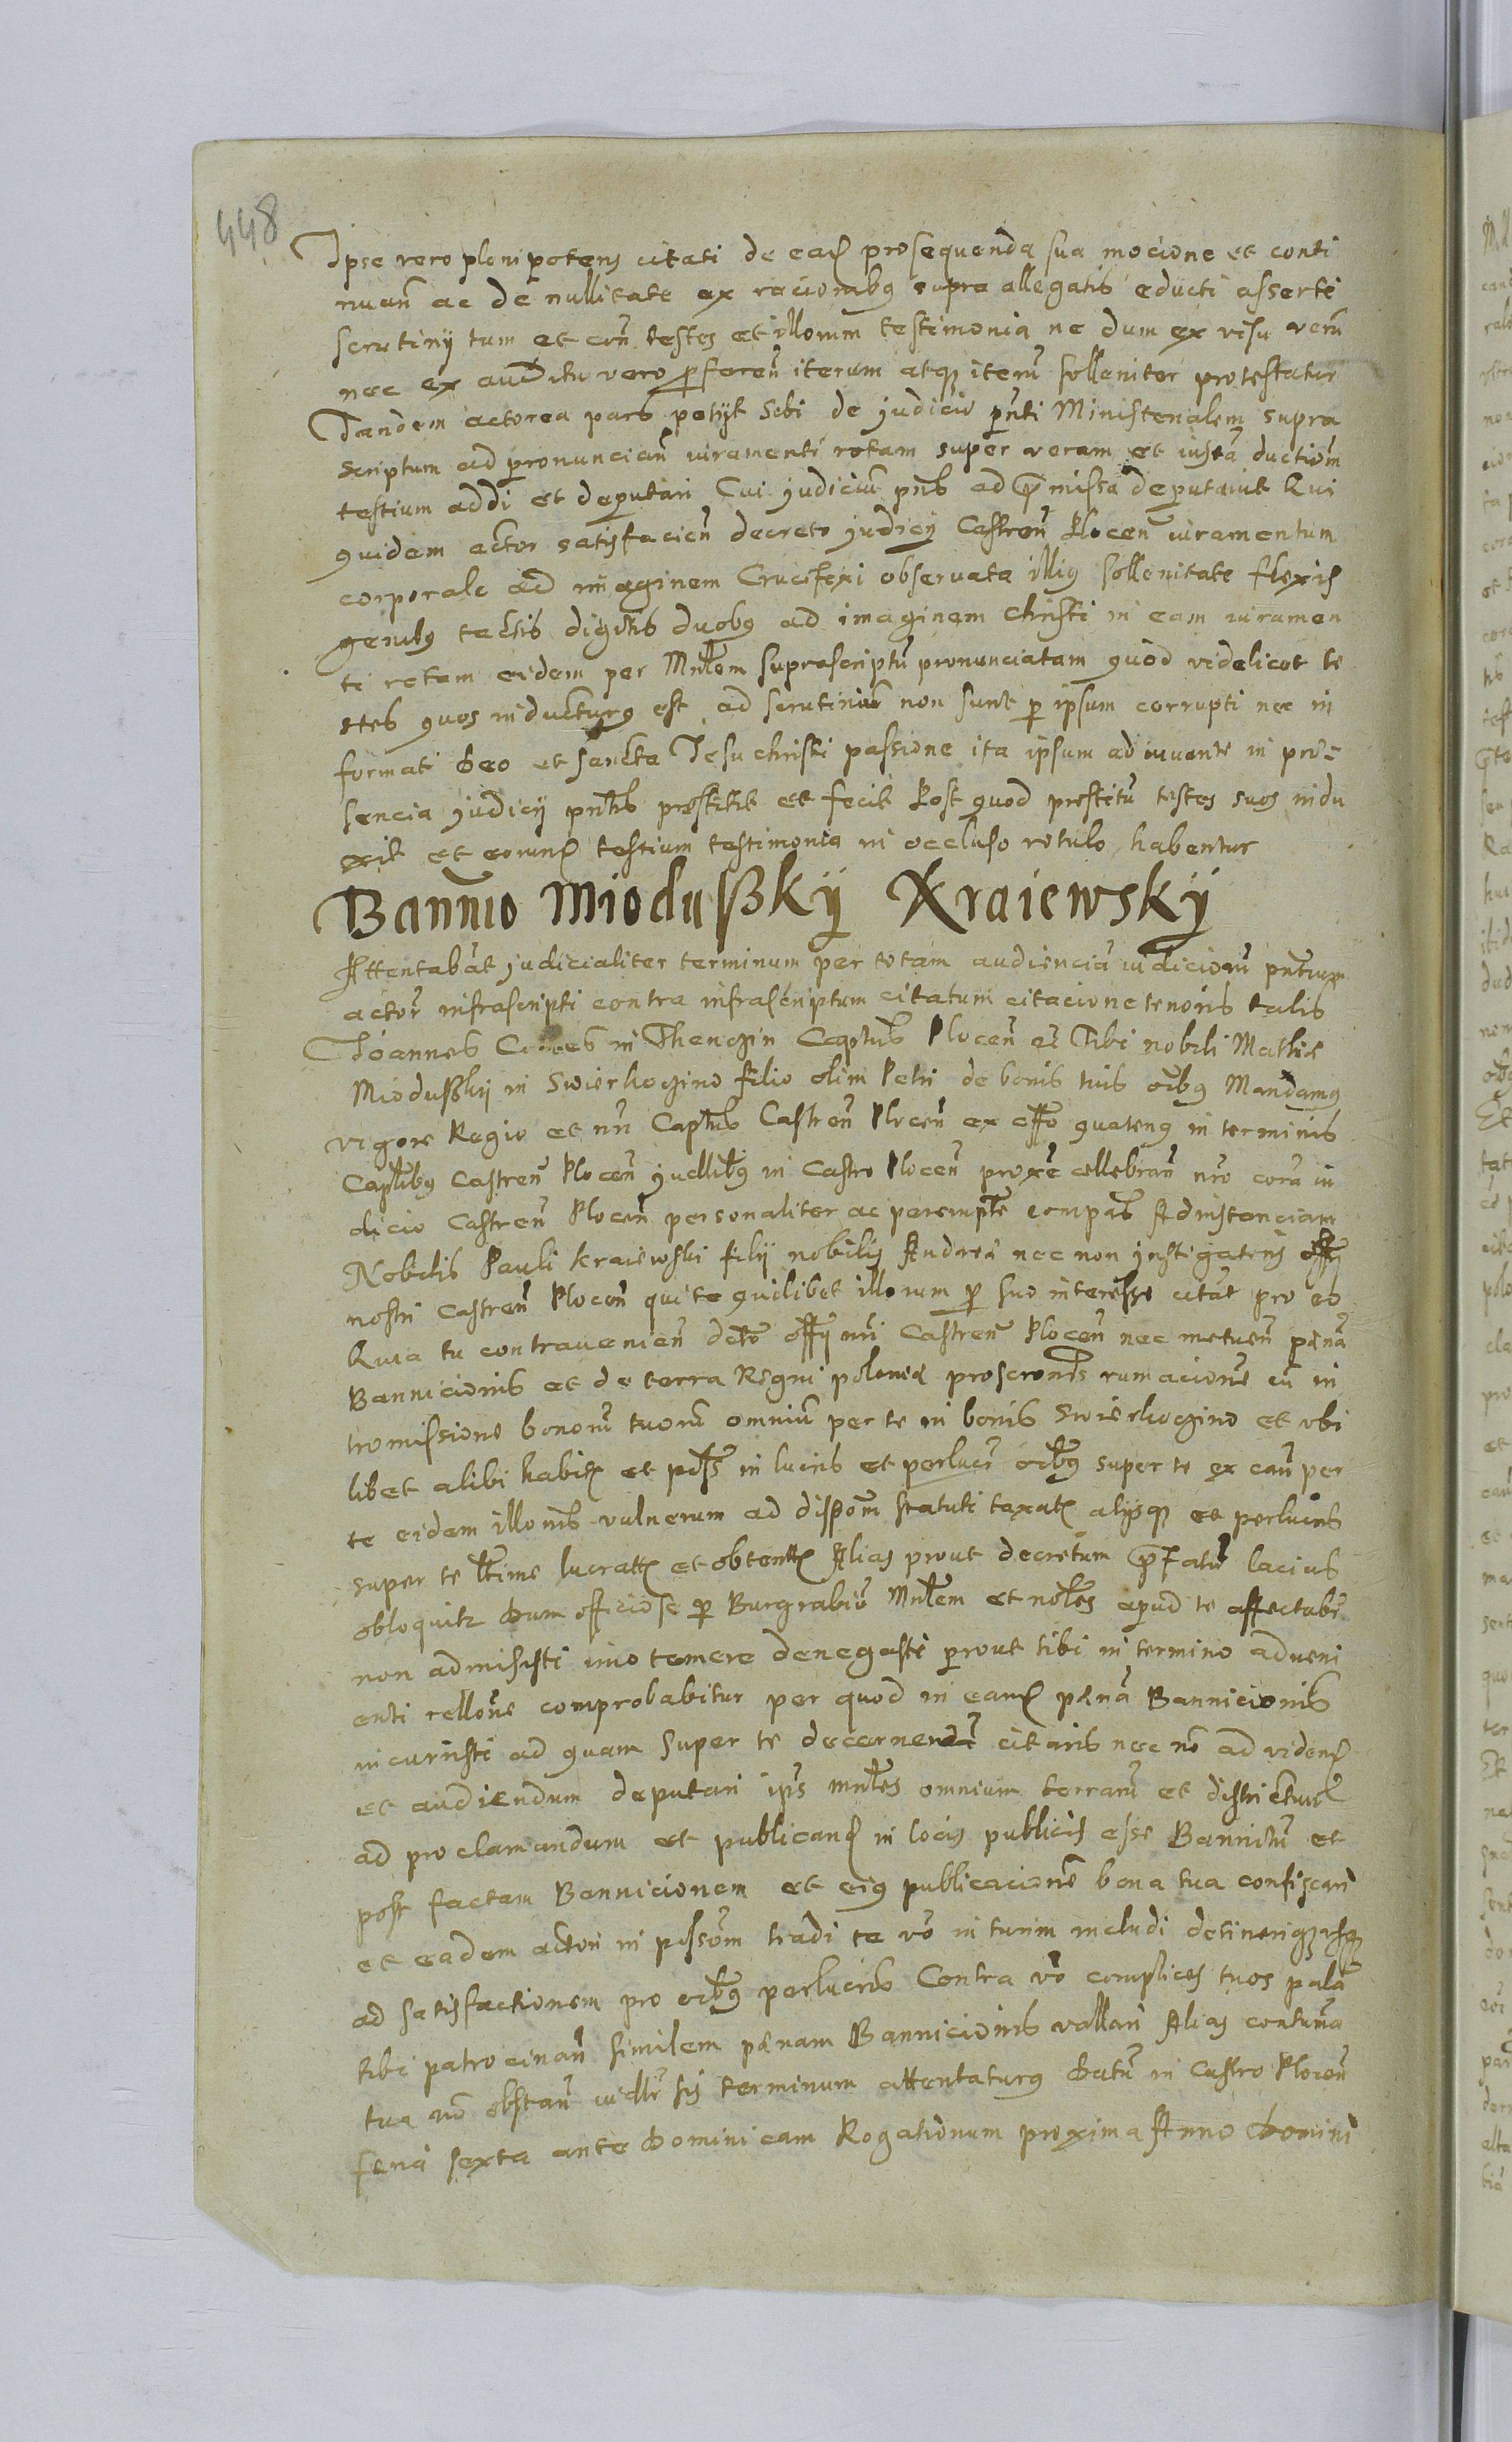 448
Ipse vero plenipotens citati de ead prosequenda sua mocione et conti
nuan ac de nullitate ex racionibus supra allegatis educti asserti
scrutinÿ tum et con testes et illorum testimonia ne dum ex visu verum
nec ex auditu vero proferen iterum atque iteru solleniter protestatur
Tandem actorea pars petÿt sibi de judicio pnti Ministerialem supra
scriptum ad pronuncian iuramenti rotam super veram et iusta ductiom
testium addi et deputari Cui judiciu pns ad præmissa deputavit Qui
quidem actor satisfacien decreto judicÿ Castren Plocen iuramentum
corporale ad imaginem Crucifixi observata illius sollenitate flexis
genibus tactis digitis duobus ad imaginem Christi in eam iuramen
ti rotam eidem per Mnltem suprascriptu pronunciatam quod videlicet te
stes quos inducturus est ad scrutiniu non sunt per ipsum corrupti nec in
formati Deo et sancta Jesu christi passione ita ipsum adiuvante in pre=
sencia judicÿ pntis prestitit et fecit Post quod prestitu testes suos indu
xit et eorund testium testimonia in occluso rotulo habentur
Bannnio Mioduskÿ Kraiewskÿ
Attentabat judicialiter terminum per totam audiencia iudicioru pntium
actor infrascripti contra infrascriptum citatum citacione tenoris talis
Joannes in Capitus Plocen Tibi nobili Mathie
Mioduskÿ in Swierhozino filio olim Petri de bonis tuis oibus Mandamus
vigore Regio et nri Captus Castren Plocen ex offo quatenus in terminis
Captlibus Castren Plocen judlibus in Castro Plocen proxe cellebran nro cora iu
dicio Castren Plocen personaliter ac perempte compas Ad instanciam
Nobilis Pauli Kraiewski filÿ nobilis Andreæ nec non jnstigatoris offÿ
nostri Castren Plocen qui te quilibet illorum pro suo interesse citat pro eo
Quia tu contravenien dcto offÿ nri Castren Plocen nec metuen pæna
Bannicionis et de terra Regni polonie in
tromissione bonoru tuoru omniu per te in bonis Swierhozino et ubi
libet alibi habit et poss in lucris et perlucr oibus super te ex cau per
te eidem illonis vulnerum ad dispom statuti taxat alÿsque et perlucris
super te ltime lucratt et obtentt Alias prout decretum præfatu lacius
obloquitr dum officiose per Burgrabiu Mnltem et noles apud te affectabr
non admisisti imo temere denegasti prout tibi in termino adveni
enti relloue comprobabitur per quod in eand pæna Bannicionis
incuristi ad quam super te decernenda citaris nec no ad vidend
et audiendum deputari ips mnles omnium terraru et districtuu
ad proclamandum et publicand in locis publicis esse Bannitu et
post factam Bannicionem et eius publicacione bona tua confiscari
et eadem actori in possom tradi te vo in turim includi detineri usque
ad satisfactionem pro oibus perlucris Contra vo complices tuos palã
tibi patrocinan similem pænam Bannicionis vallari Alias contuma
tua no obstan iudlr sis terminum attentaturus Datu in Castro Plocen
feria sexta ante Dominicam Rogationum proxima Anno Domini